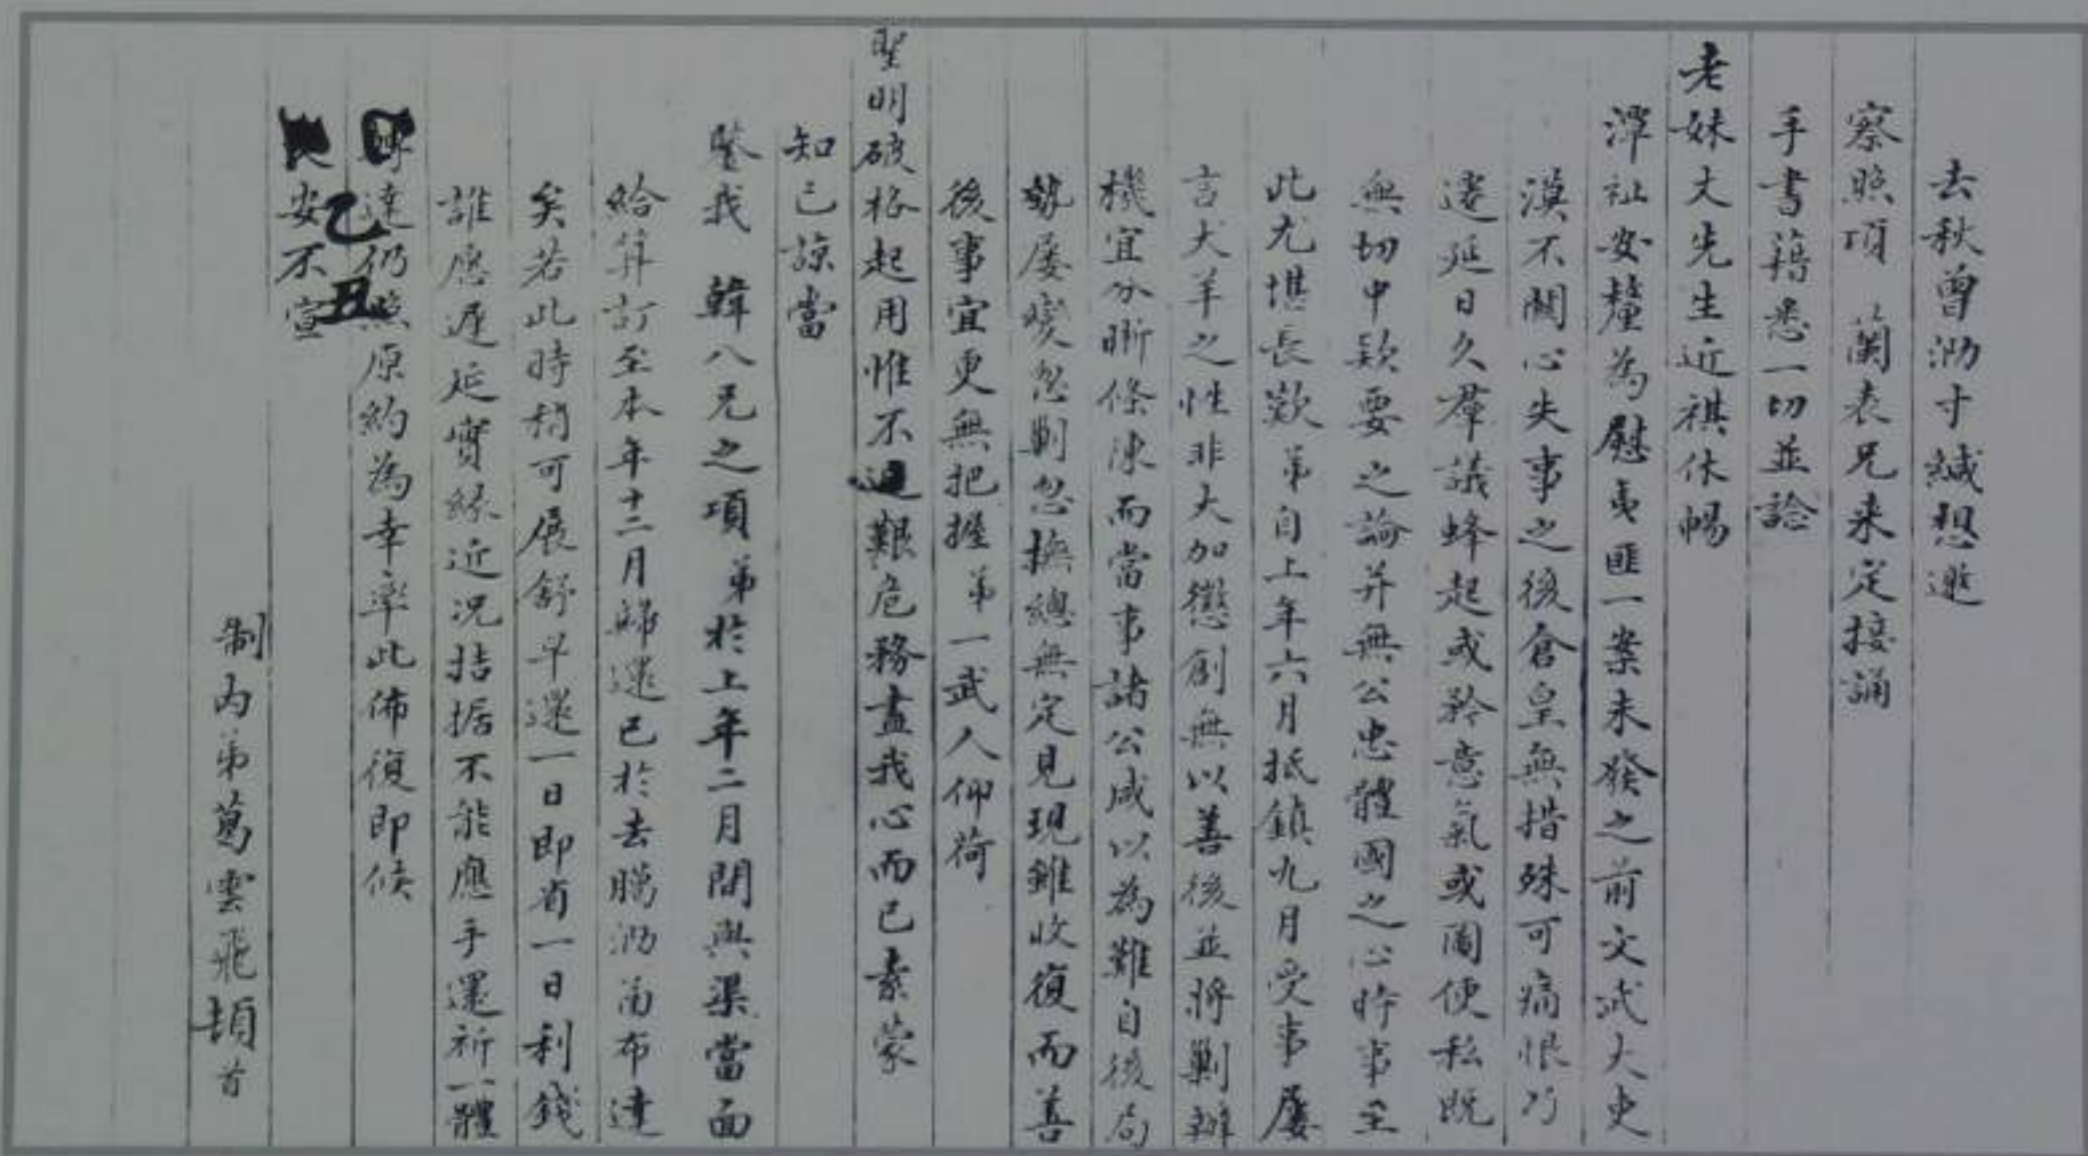 去秋曾泐寸緘想邀
察照頃 蘭表兄来定接誦
手書藉悉一切並諗
老妹丈先生近祺休暢
潭祉安釐為慰夷匪一案未發之前文武大吏
漠不關心失事之後倉皇無措殊可痛恨乃
遷延日久羣議蜂起或矜意氣或圖便私既
無切中欵要之論并無公忠體國之心時事至
此尤堪長歎弟自上年六月抵鎮九月受事屢
言犬羊之性非大加懲創無以善後並將剿辦
機宜分晰條陳而當事諸公咸以為難自後局
勢屡變忽剿忽撫總無定見現雖收復而善
後事宜更無把握弟一武人仰荷
聖明破格起用惟不避艱危務盡我心而已素蒙
知己諒當
鑒我 韓八兄之項弟於上年二月間與渠當面
給算訂至本年十二月歸還已於去臘泐函布達
矣若此時稍可展舒早還一日即省一日利錢
誰應遲延實緣近況拮据不能應手還祈一體
轉達仍照原約為幸率此佈復即候
安不宣
乙丑
制內弟葛雲飛頓首